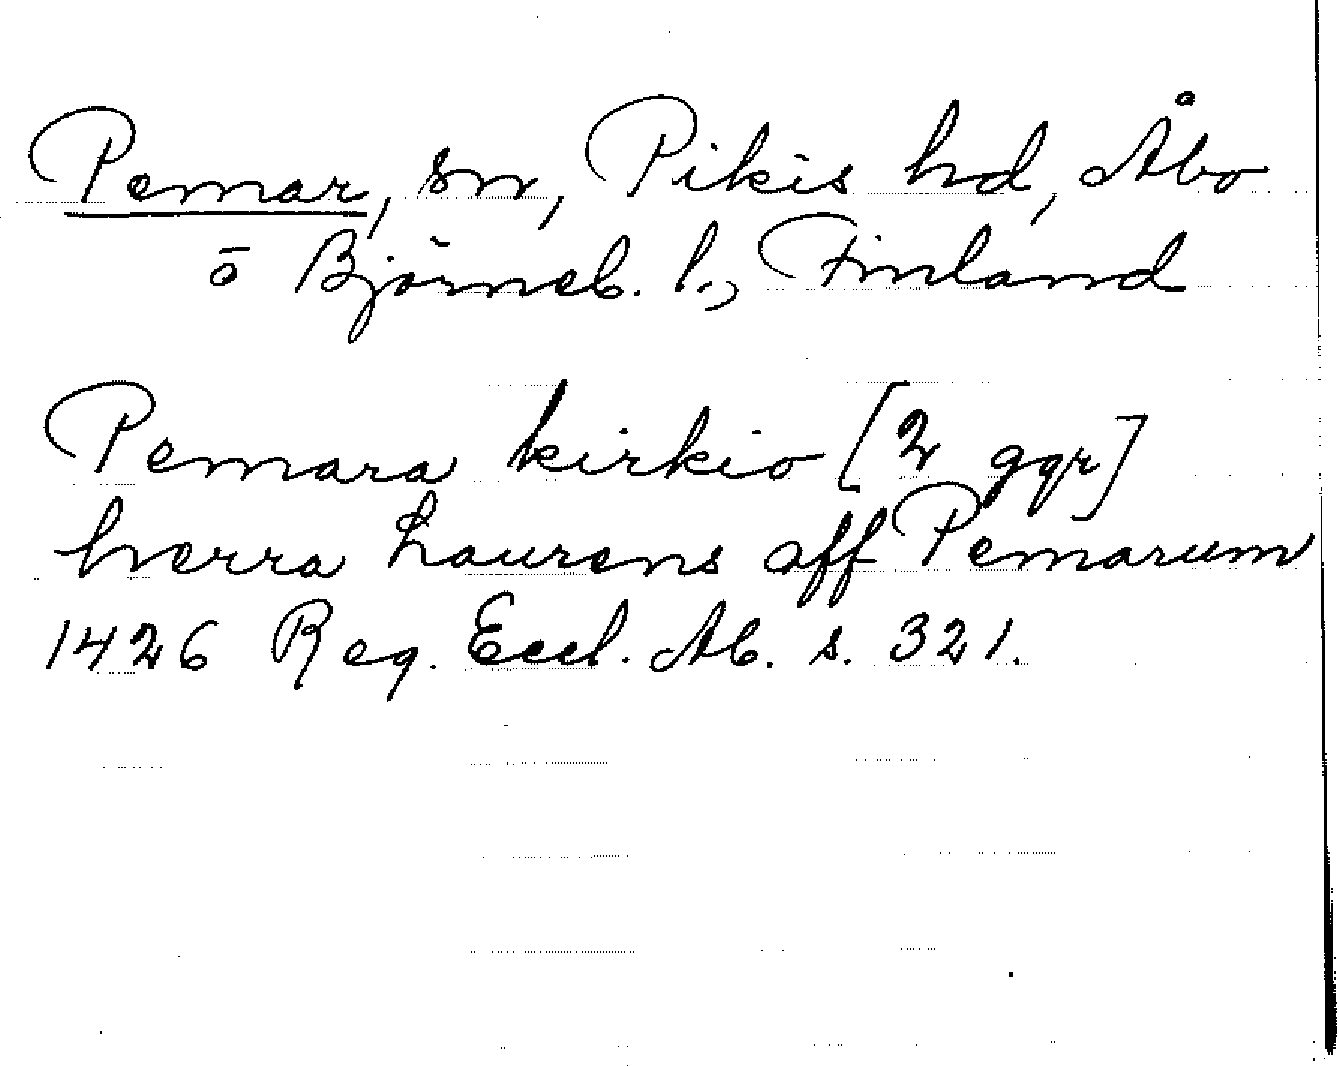 Pemar, sn, Pikis hd, Åbo
o̅ Björneb. l., Finland
Pemara kirkio [2 ggr]
herra Laurens aff Pemarum
1426 Reg. Eccl. Ab. s. 321.